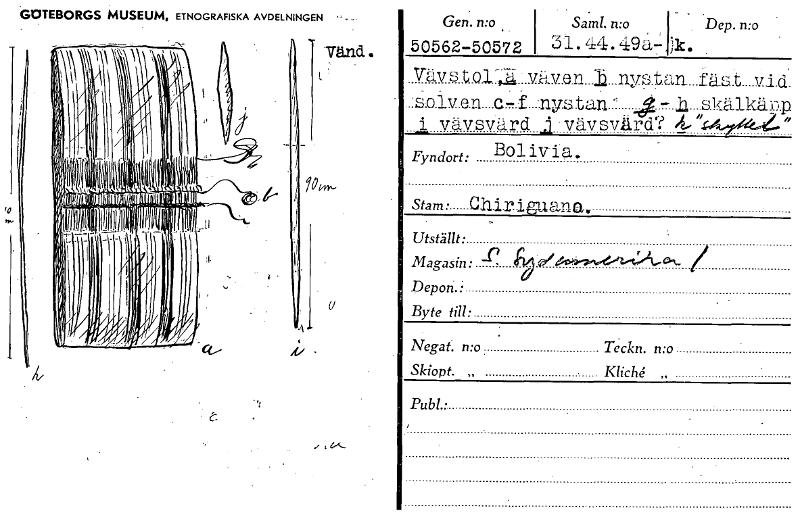 GÖTEBORGS MUSEUM, ETNOGRAFISKA AVDELNINGEN
Vänd.
j
b
90 cm
h
a
i.
c
Gen. n:o
50562-50572
Saml. n:o
31.44.49a-k.
Dep. n:o
Vävstol, a väven b nystan fäst vid
solven c-f nystan g-h skälkäpp
i vävsvärd j vävsvärd? k "skyttel"
Fyndort: Bolivia.
Stam: Chiriguano.
Utställt:
Magasin: S. Sydamerika /
Depon.:
Byte till:
Negat. n:o
Teckn. n:o
Skiopt. „
Kliché „
Publ.: